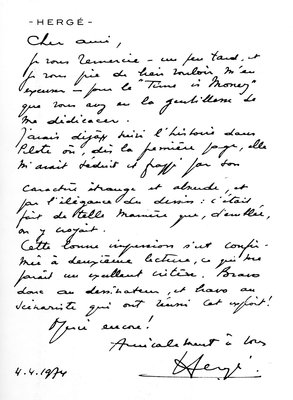 - HERGÉ -
Cher ami,
Je vous remercie - un peu tard, et
je vous prie de bien vouloir m'en
excuser - pour le "Time is Money"
que vous avez eu la gentillesse de
me dédicacer.
J'avais déjà suivi l'histoire dans
Pilote où, dès la première page, elle
m'avait séduit et frappé par son
caractère étrange et absurde, et
par l'élégance du dessin : c'était
fait de telle manière que, d'emblée,
on y croyait.
Cette bonne impression s'est confir-
mée à deuxième lecture, ce qui me
paraît un excellent critère. Bravo
donc au dessinateur, et bravo au
scénariste qui ont réussi cet exploit!
Merci encore!
Amicalement à vous
Hergé.
4.4.1974